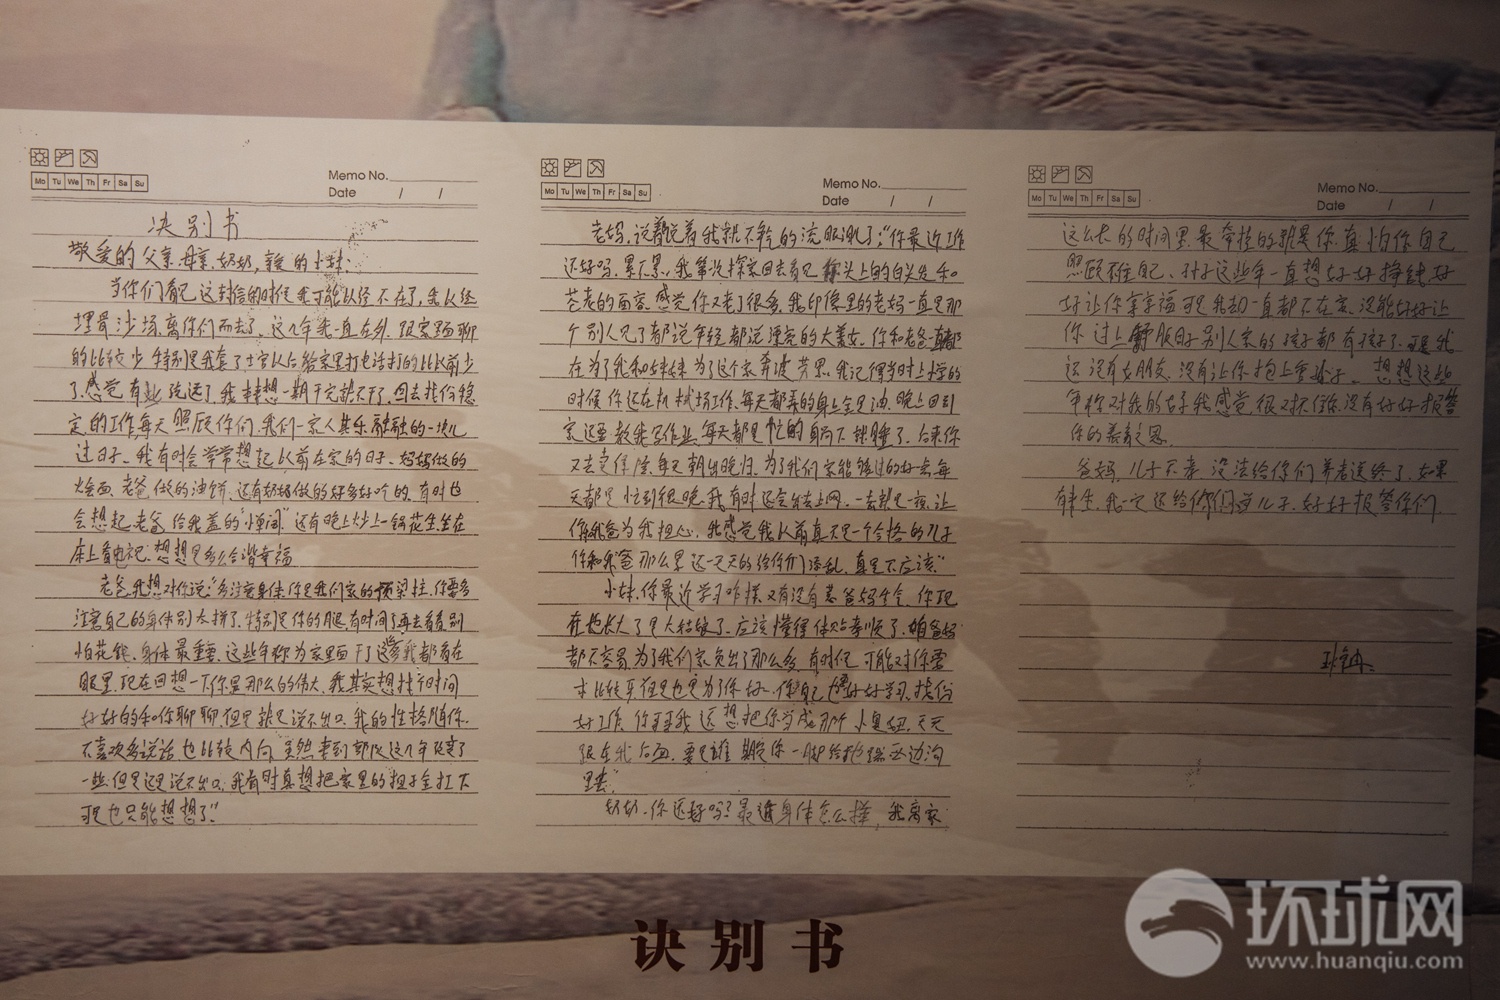 Mo Tu We Th Fr Sa Su
Memo No.
Date / /
决别书
敬爱的父亲、母亲、奶奶，亲爱的小妹：
当你们看见这封信的时候我可能以经不在了，我以经
埋骨沙场，离你们而去了，这几年我一直在外，跟家里面聊
的比较少，特别是我套了士官以后给家里打电话打的比以前少
了，感觉有些疏远了，我想一期干完就不干了，回去找份稳
定的工作，每天照顾你们，我们一家人其乐融融的一块儿
过日子。我有时会常常想起以前在家的日子、妈妈做的
烩面，老爸做的油饼，还有奶奶做的好多好吃的，有时也
会想起老爸给我盖的“小单间”，还有晚上炒上一锅花生，坐在
床上看电视，想想是多么合谐幸福
老爸，我想对你说：“多注意身体，你是我们家的顶梁柱，你要多
注意自己的身体别太拼了，特别是你的腿，有时间了再去看看，别
怕花钱，身体最重要，这些年你为家里面干了这多我都看在
眼里，现在回想一下你是那么的伟大，我其实想找个时间
好好的和你聊聊，但是就是说不出口，我的性格随你，
不喜欢多说话，也比较内向，虽然来到部队这几年改变了
一些，但是还是说不出口，我有时真想把家里的担子全扛下
可是也只能想想了。”
Mo Tu We Th Fr Sa Su
Memo No.
Date / /
老妈，说着说着我就不争的流眼泪了，“你最近工作
还好吗，累不累，我每次探家回去看见你头上的白头发和
苍老的面容，感觉你又老了很多，我印像里的老妈一直是那
个别人见了都说年轻都说漂亮的大美女，你和老爸一直都
在为了我和妹妹为了这个家奔波劳累，我记得当时上小学的
时候你还在机械场工作，每天都弄的身上全是油，晚上回到
家还要教我写作业，每天都是忙的躺下就睡了，后来你
又去卖保险，每天朝出晚归，为了我们家能够过的好去每
天都是忙到很晚，我有时还会出去上网，一去就是一夜，让
你和我爸为我担心，我感觉我以前真不是一个合格的儿子
你和我爸那么累还一天天的给你们添乱，真是不应该。”
小妹，你最近学习咋样，又有没有惹爸妈生气，你现
在也长大了是大姑娘了，应该懂得体贴孝顺了，咱爸妈
都不容易，为了我们家负出了那么多，有时候可能对你要
求比较严但是也是为了你好，你自己也要好好学习，找份
好工作，你哥哥我还想把你当成那个小臭妞，天天
跟在我后面，要是谁欺负你一脚给他踹西边沟
里去。
奶奶，你还好吗？最近身体怎么样，我离家
Mo Tu We Th Fr Sa Su
Memo No.
Date / /
这么长的时间里最牵挂的就是你，真怕你自己
照顾不住自己，孙子这些年一直想好好挣钱好
好让你享享福可是我却一直都不在家，没能好好让
你过上舒服日子，别人家的孩子都有孩子了，可是我
还没有女朋友，没有让你抱上重孙子，想想这些
年你对我的好，我感觉很对不住你，没有好好报答
你的养育之恩。
爸妈，儿子不孝，没法给你们养老送终了，如果
有来生，我一定还给你们当儿子，好好报答你们
诀别书
环球网
www.huanqiu.com